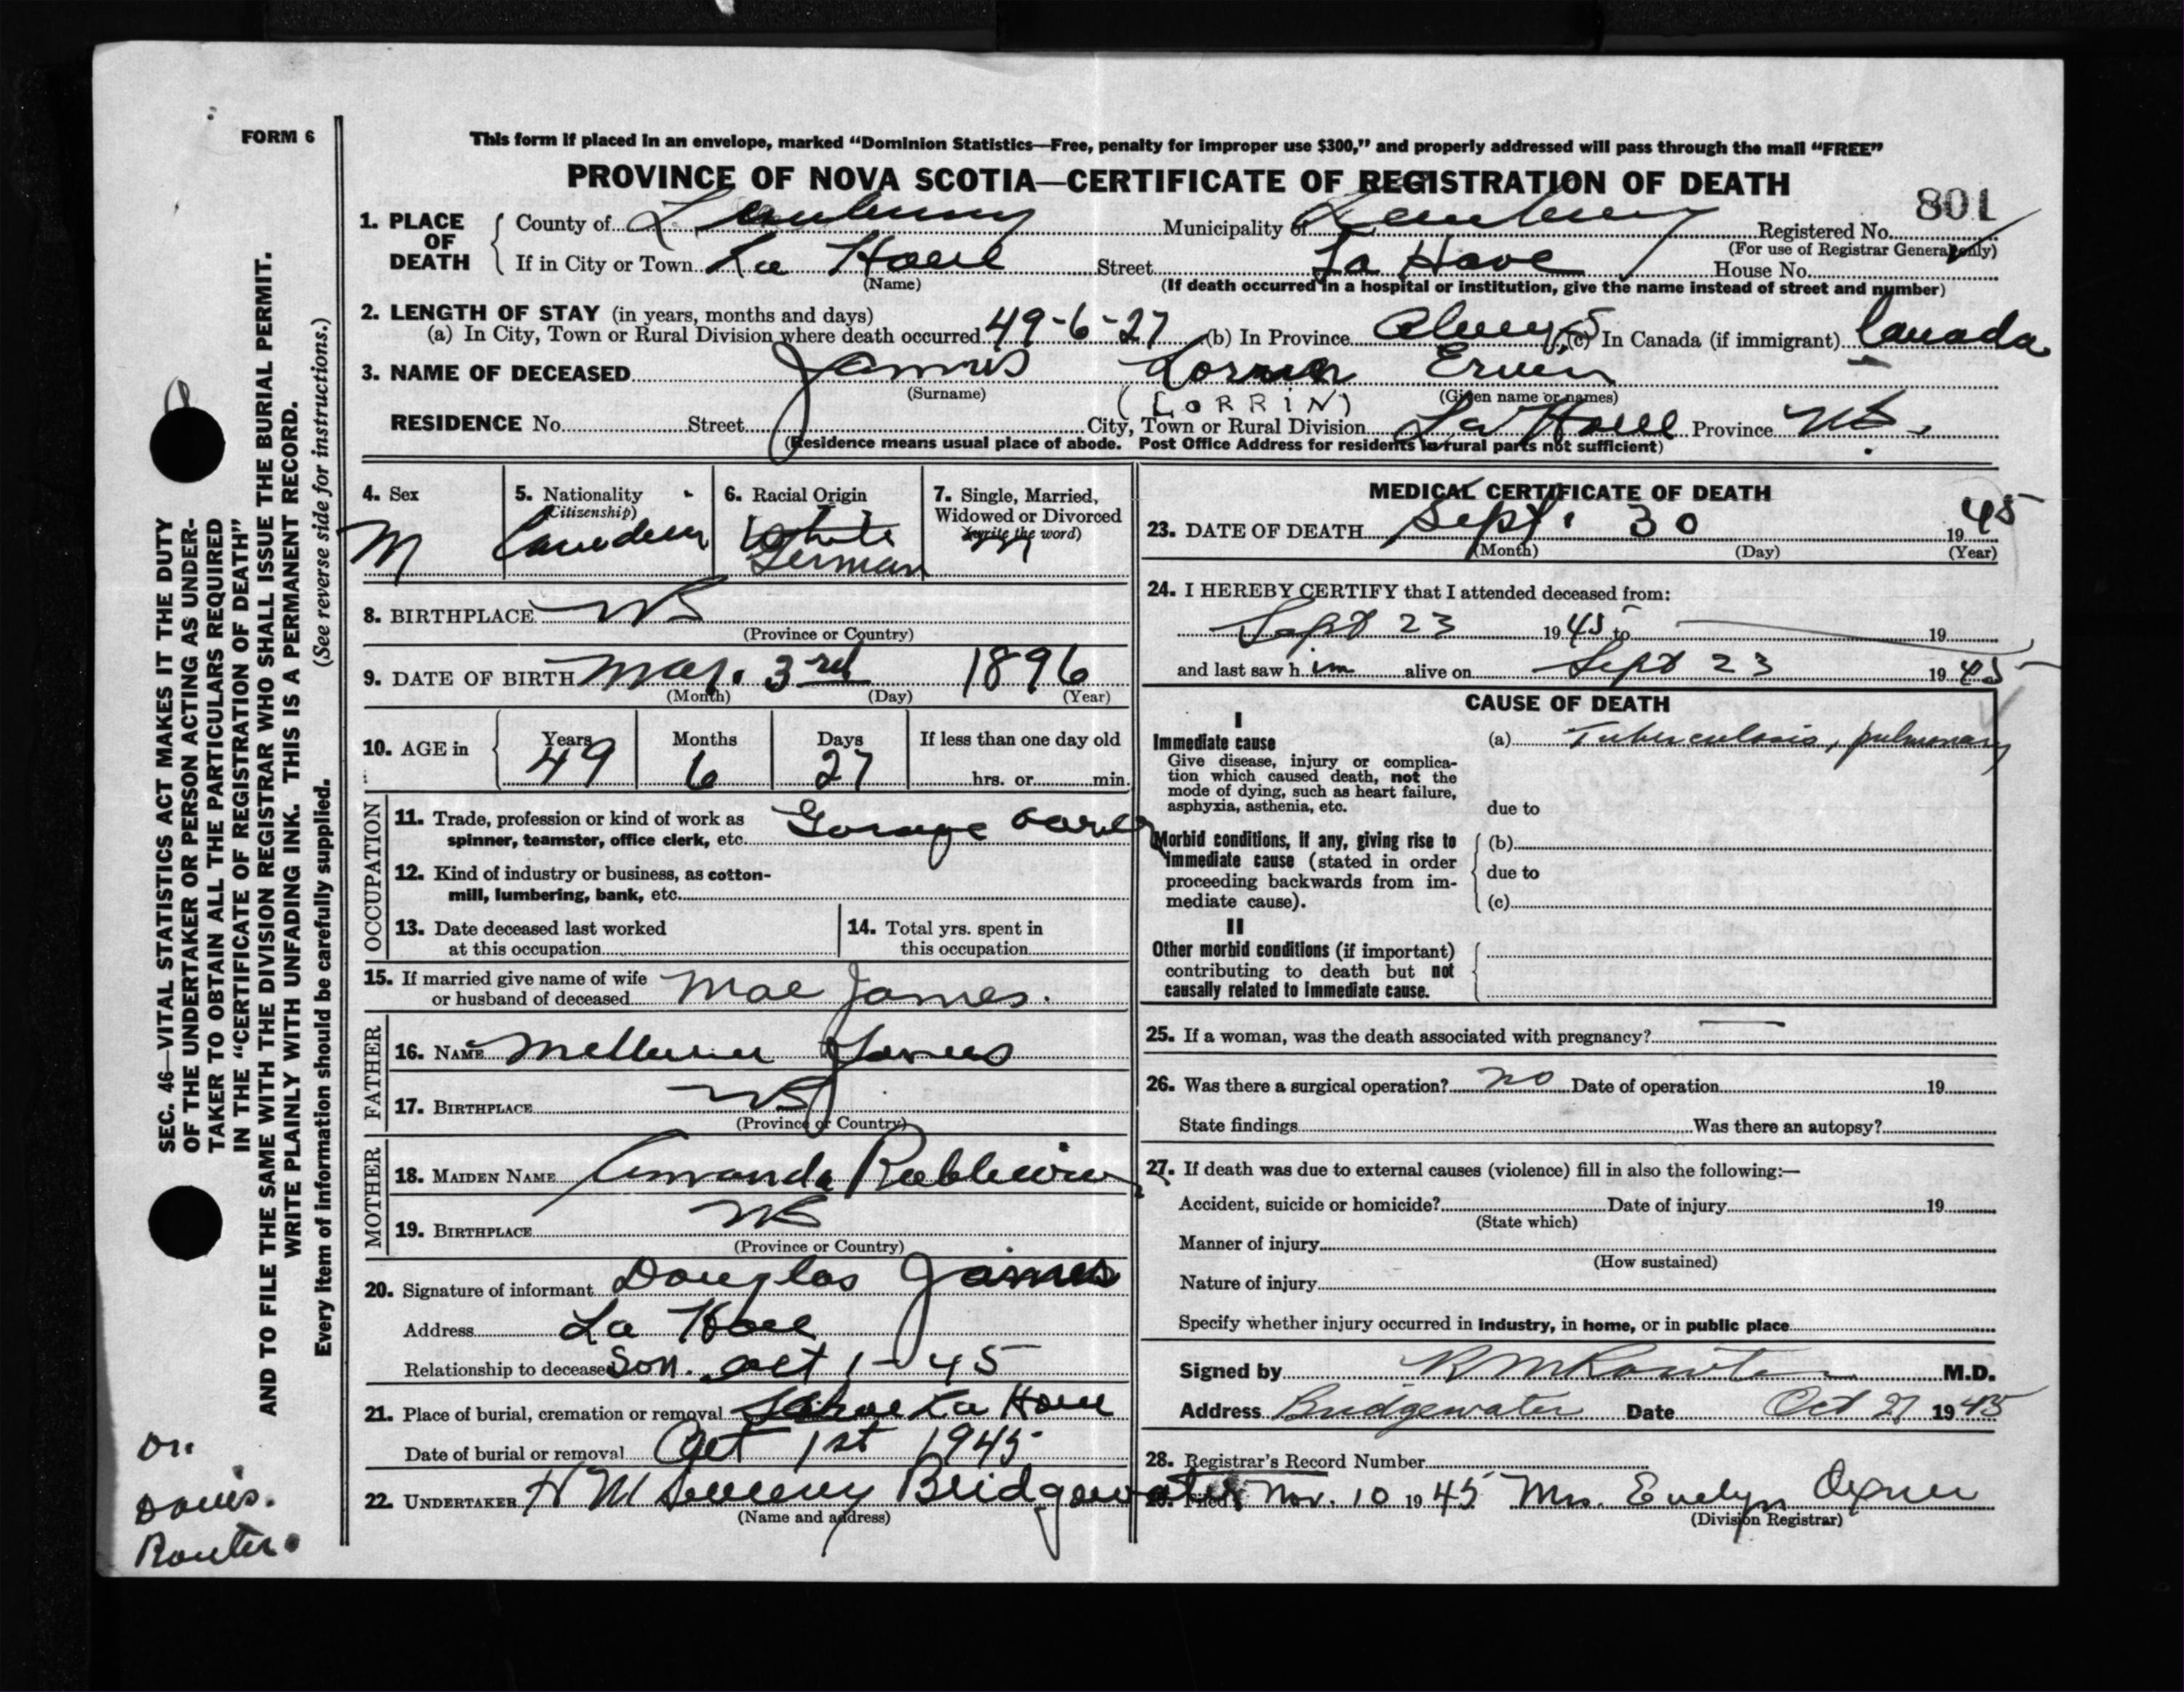 FORM 6
This form if placed in an envelope, marked “Dominion Statistics—Free, penalty for improper use $300,” and properly addressed will pass through the mail “FREE”
PROVINCE OF NOVA SCOTIA—CERTIFICATE OF REGISTRATION OF DEATH
801
1. PLACE OF DEATH
County of Lunenburg Municipality of Lunenburg Registered No.
(For use of Registrar General only)
If in City or Town La Have Street La Have House No.
(Name)
(If death occurred in a hospital or institution, give the name instead of street and number)
2. LENGTH OF STAY (in years, months and days)
(a) In City, Town or Rural Division where death occurred 49-6-27 (b) In Province Always (c) In Canada (if immigrant) Canada
3. NAME OF DECEASED James Lorren Erwin
(Surname) (LORRIN) (Given name or names)
RESIDENCE No. Street City, Town or Rural Division La Have Province NS.
(Residence means usual place of abode. Post Office Address for residents in rural parts not sufficient)
4. Sex
M
5. Nationality
(Citizenship)
Canadian
6. Racial Origin
White
German
7. Single, Married,
Widowed or Divorced
(write the word)
m
8. BIRTHPLACE NS
(Province or Country)
9. DATE OF BIRTH Mar. 3rd 1896
(Month) (Day) (Year)
10. AGE in
Years Months Days If less than one day old
49 6 27 hrs. or min.
OCCUPATION
11. Trade, profession or kind of work as
spinner, teamster, office clerk, etc. Garage owner
12. Kind of industry or business, as cotton-
mill, lumbering, bank, etc.
13. Date deceased last worked
at this occupation
14. Total yrs. spent in
this occupation
15. If married give name of wife
or husband of deceased Mae James.
FATHER
16. NAME James
17. BIRTHPLACE NS
(Province or Country)
MOTHER
18. MAIDEN NAME Amanda
19. BIRTHPLACE NS
(Province or Country)
20. Signature of informant Douglas James
Address La Have
Relationship to deceased Son. Oct 1-45
21. Place of burial, cremation or removal La Have
Date of burial or removal Oct 1st 1945
22. UNDERTAKER H M Sweeny Bridgewater
(Name and address)
MEDICAL CERTIFICATE OF DEATH
23. DATE OF DEATH Sept. 30 1945
(Month) (Day) (Year)
24. I HEREBY CERTIFY that I attended deceased from:
Sept 23 1945 to 19
and last saw him alive on Sept 23 1945
CAUSE OF DEATH
I
Immediate cause
Give disease, injury or complica-
tion which caused death, not the
mode of dying, such as heart failure,
asphyxia, asthenia, etc.
(a) Tuberculosis, pulmonary
due to
Morbid conditions, if any, giving rise to
immediate cause (stated in order
proceeding backwards from im-
mediate cause).
(b)
due to
(c)
II
Other morbid conditions (if important)
contributing to death but not
causally related to immediate cause.
25. If a woman, was the death associated with pregnancy? —
26. Was there a surgical operation? no Date of operation 19
State findings Was there an autopsy?
27. If death was due to external causes (violence) fill in also the following:—
Accident, suicide or homicide? Date of injury 19
(State which)
Manner of injury
(How sustained)
Nature of injury
Specify whether injury occurred in industry, in home, or in public place
Signed by M.D.
Address Bridgewater Date Oct 27 1945
28. Registrar's Record Number
29. Filed Nov. 10 1945 Mrs. Evelyn Oxner
(Division Registrar)
SEC. 46—VITAL STATISTICS ACT MAKES IT THE DUTY
OF THE UNDERTAKER OR PERSON ACTING AS UNDER-
TAKER TO OBTAIN ALL THE PARTICULARS REQUIRED
IN THE “CERTIFICATE OF REGISTRATION OF DEATH”
AND TO FILE THE SAME WITH THE DIVISION REGISTRAR WHO SHALL ISSUE THE BURIAL PERMIT.
WRITE PLAINLY WITH UNFADING INK. THIS IS A PERMANENT RECORD.
Every item of information should be carefully supplied. (See reverse side for instructions.)